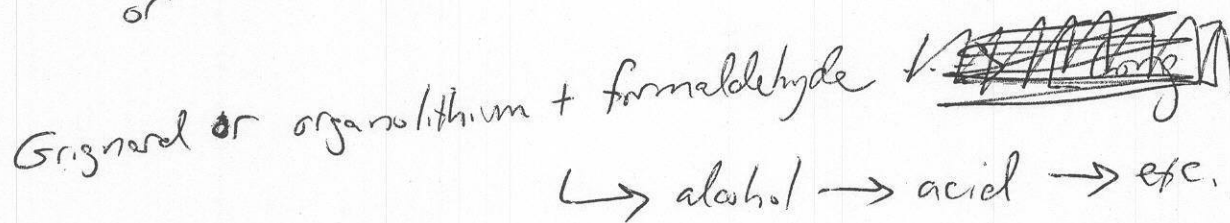 or
Grignard or organolithium + formaldehyde
↳ alcohol → acid → etc.